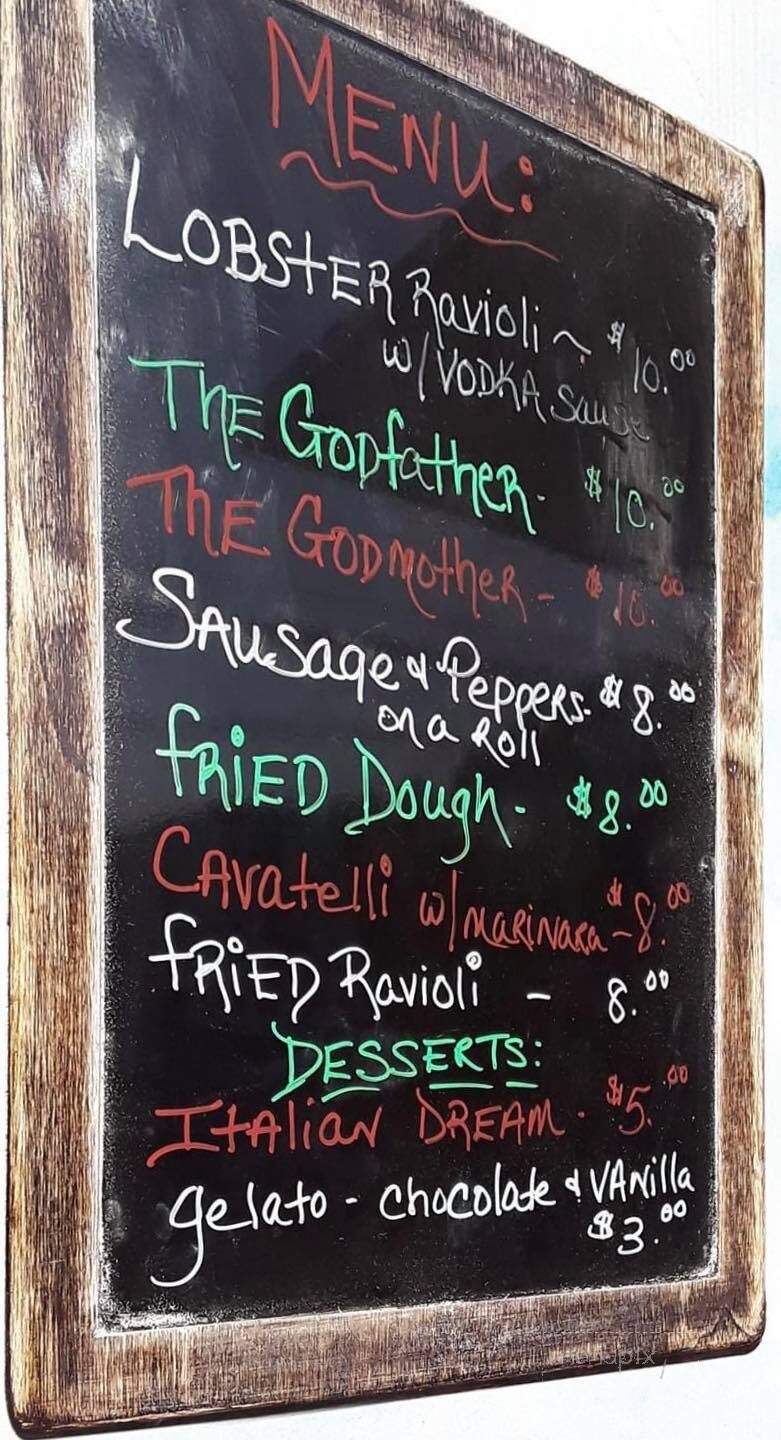 MENU:
LOBSTER Ravioli ~ $10.00
w/VODKA Sause
THE GODfather - $10.00
THE GODMother - $10.00
SAUSage & Peppers - $8.00
on a Roll
fRiED Dough - $8.00
CAvatelli w/MARiNARA - $8.00
fRiED Ravioli - 8.00
DESSERTS:
ItAliaN DREAM - $5.00
gelato - chocolate & VANilla
$3.00